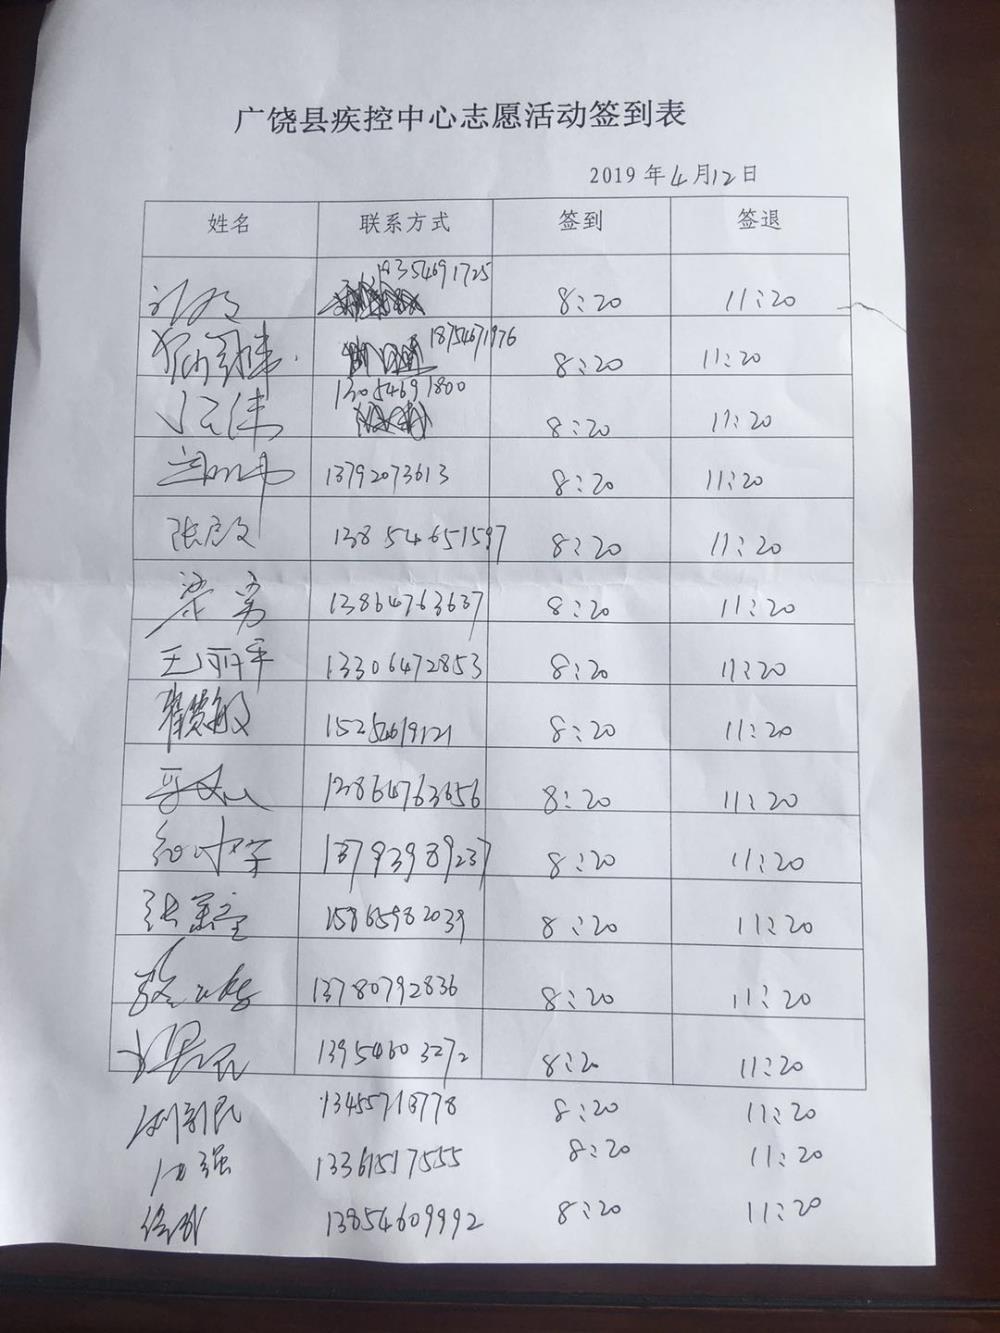 广饶县疾控中心志愿活动签到表
2019 年 4 月 12 日
姓名 联系方式 签到 签退
1354691725 8:20 11:20
18754671976 8:20 11:20
13054691800 8:20 11:20
13792073613 8:20 11:20
张启文 13854651597 8:20 11:20
梁勇 13864763637 8:20 11:20
王丽平 13306472853 8:20 11:20
15254619121 8:20 11:20
13864763656 8:20 11:20
13793989237 8:20 11:20
张 15865982039 8:20 11:20
13780792836 8:20 11:20
13954603272 8:20 11:20
刘新民 13455713778 8:20 11:20
强 13361517555 8:20 11:20
徐 13854609992 8:20 11:20